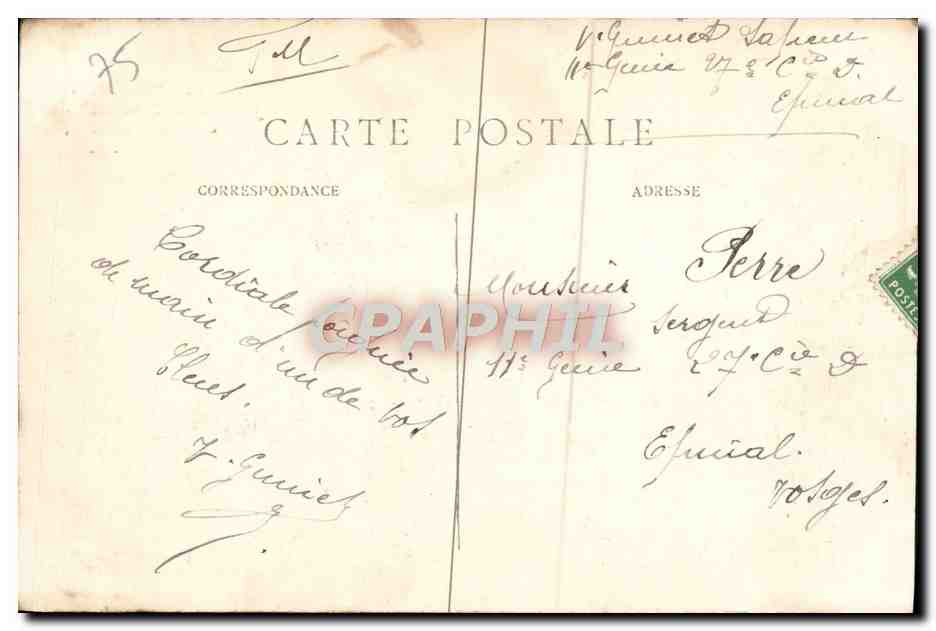 75
FM
V. Guinet Sapeur
11e Génie 27e Cie D.
Epinal
CARTE POSTALE
CORRESPONDANCE
ADRESSE
Cordiale poignée
de main d'un de vos
Eleves.
V. Guinet
Monsieur Perre
Sergent
11e Génie 27e Cie D
Epinal.
Vosges.
POSTES
CPAPHIL